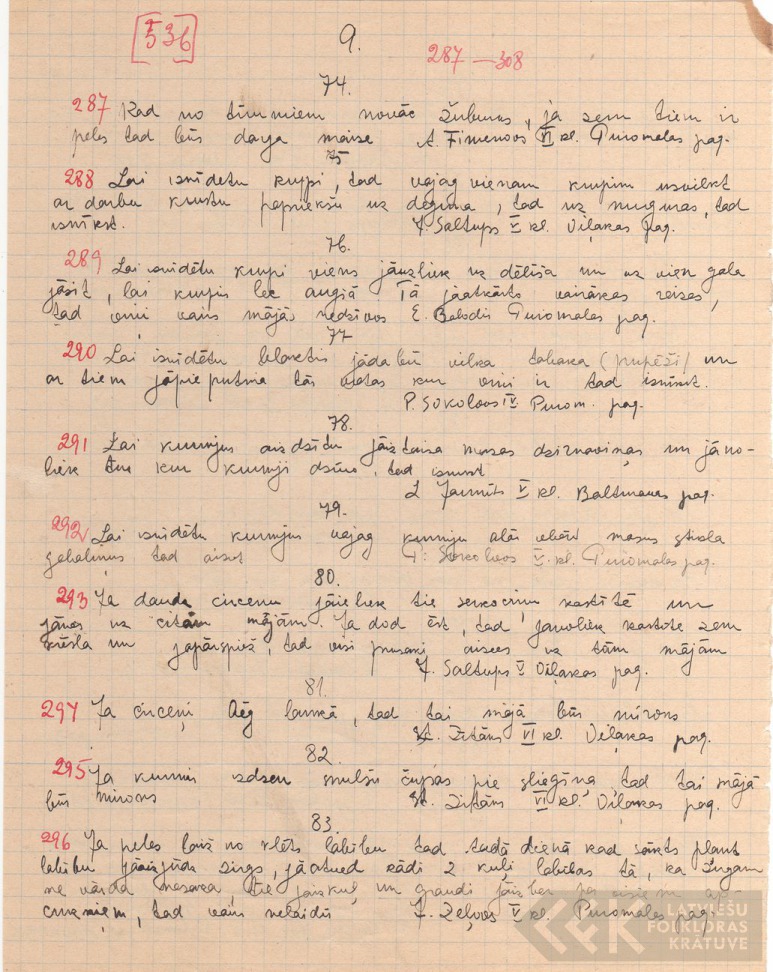 [536] 9. 287—308
74.
287 Kad no tīrumiem novāc žuburus, ja zem tiem ir
peles tad būs dārga maize A. Fimenovs VI kl. Purvmalas pag.
75
288 Lai iznīdētu krupi, tad vajag vienam krupim uzvilkt
ar darbu krustu papriekšu uz deguna, tad uz muguras, tad
iznīkst. J. Saltups V kl. Viļakas pag.
76.
289 Lai iznīdētu krupi viens jāuzliek uz dēlīša un uz vien gala
jāsit, lai krupis lec augšā Tā jāatkārto vairākas reizes,
tad viņi vairs mājās nedzīvos E. Balodis Purvmalas pag.
77
290 Lai iznīdētu blaktis jādabū vilka tabaka (pūpēži) un
ar tiem jāpieputina tās vietas kur viņi ir tad iznīkst.
P. Sokolovs IV Purvm. pag.
78.
291 Lai kurmjus aizdzītu jāiztaisa mazas dzirnaviņas un jāno-
liek tur kur kurmji dzīvo, tad iznīkst
V kl. Baltinavas pag.
79.
292 Lai iznīdētu kurmjus vajag kurmju alās iebērt mazus stikla
gabaliņus tad aiziet P. Sokolovs V. kl. Purvmalas pag.
80.
293 Ja daudz circeņu jāieliek tie sērkociņu kastītē un
jānes uz citām mājām. Ja dod ēst, tad janoliek kastīte zem
krēsla un japārspiež, tad visi prusaki aizies uz tām mājām
J. Saltups V Viļakas pag.
81.
294 Ja circeņi bēg laukā, tad tai mājā būs mirons
A. Zitāns VI kl. Viļakas pag.
82.
295 Ja kurmis izdzen smilšu čupas pie sliegšņa, tad tai mājā
būs mirons A. Zitāns VI kl. Viļakas pag.
83.
296 Ja peles laiž no klēts labību tad tadā dienā kad sākts plaut
labību jāaizjūdz zirgs, jāatved kādi 2 kuļi labības tā, ka zirgam
ne vārda nesaka, tie jāizkuļ un graudi jāizber pa visiem ap-
cirkņiem, tad vairs nelaidīs J. Zeļvos V kl. Purvmalas pag.
LATVIEŠU
FOLKLORAS
KRĀTUVE